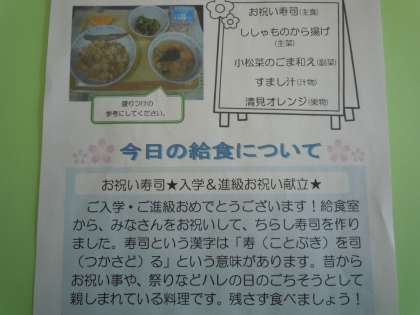 お祝い寿司(主食)
ししゃものから揚げ
(主菜)
小松菜のごま和え(副菜)
すまし汁(汁物)
清見オレンジ(果物)
盛りつけの
参考にしてください。
今日の給食について
お祝い寿司★入学&進級お祝い献立★
ご入学・ご進級おめでとうございます!給食室
から、みなさんをお祝いして、ちらし寿司を作り
ました。寿司という漢字は「寿（ことぶき）を司
（つかさど）る」という意味があります。昔から
お祝い事や、祭りなどハレの日のごちそうとして
親しまれている料理です。残さず食べましょう!